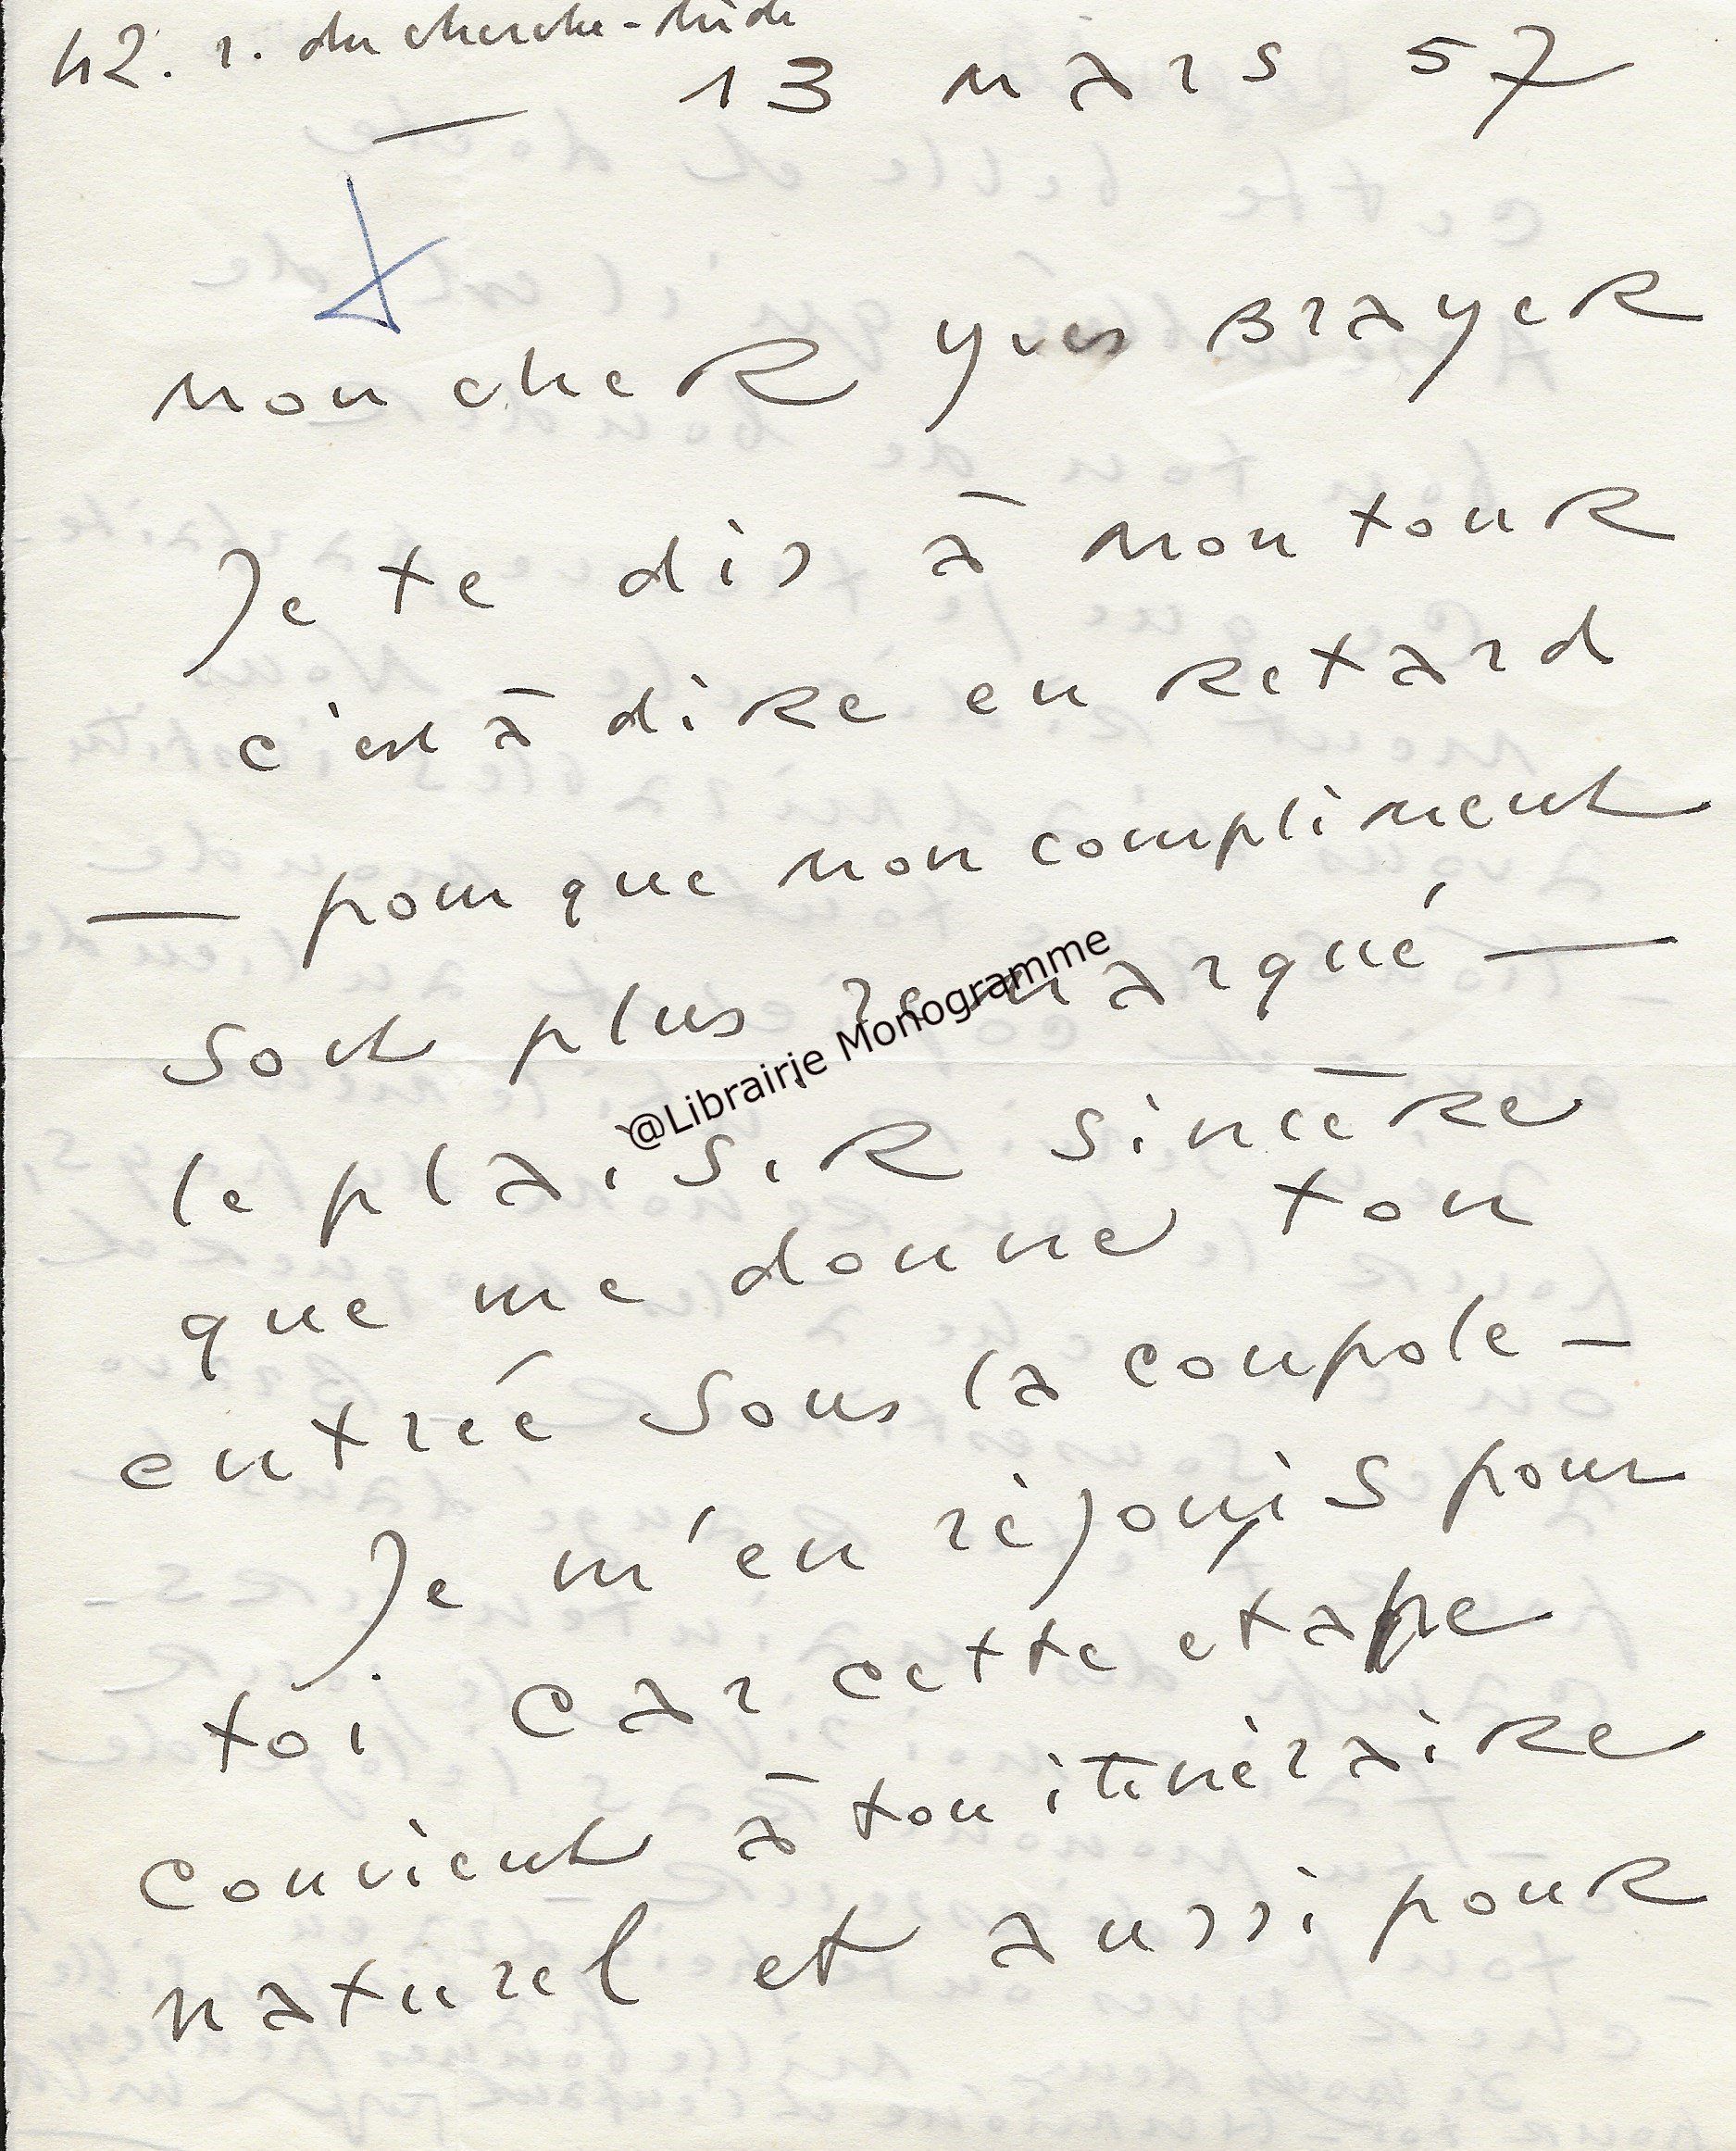 42. r. du cherche-midi
13 mars 57
mon cher yves Brayer
Je te dis à mon tour
c'est à dire en retard
— pour que mon compliment
soit plus remarqué —
@Librairie Monogramme
le plaisir sincère
que me donne ton
entrée sous la coupole —
Je m'en réjouis pour
toi car cette etape
convient à ton itinéraire
naturel et aussi pour